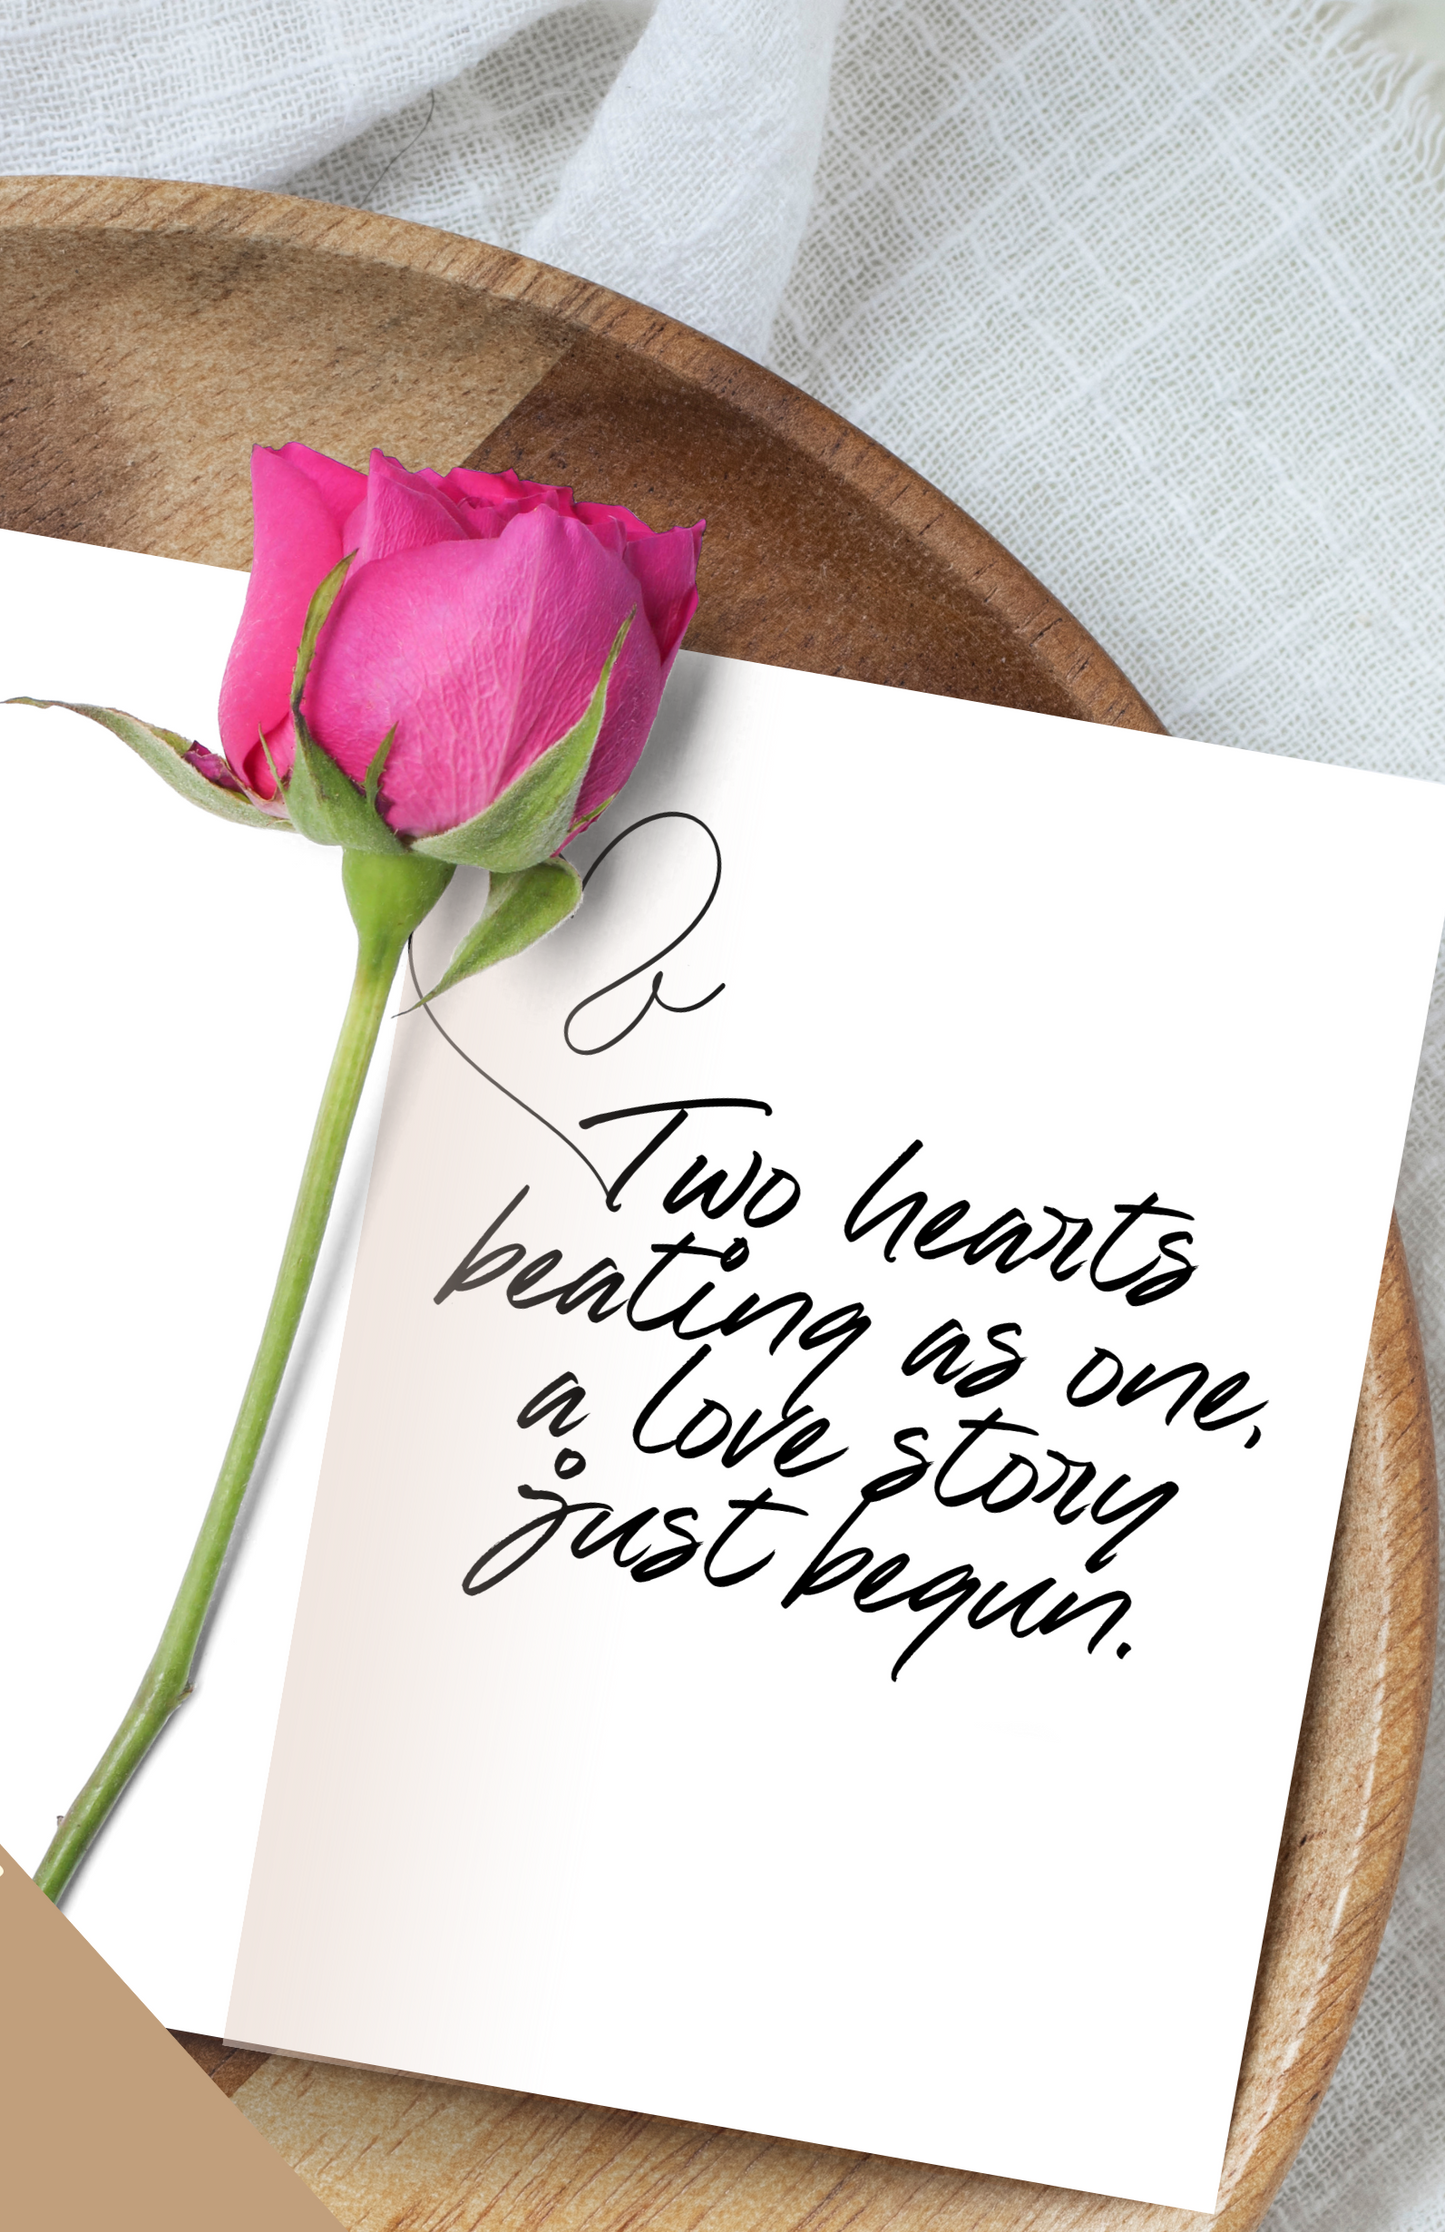 Two hearts
beating as one,
a love story
just begun.